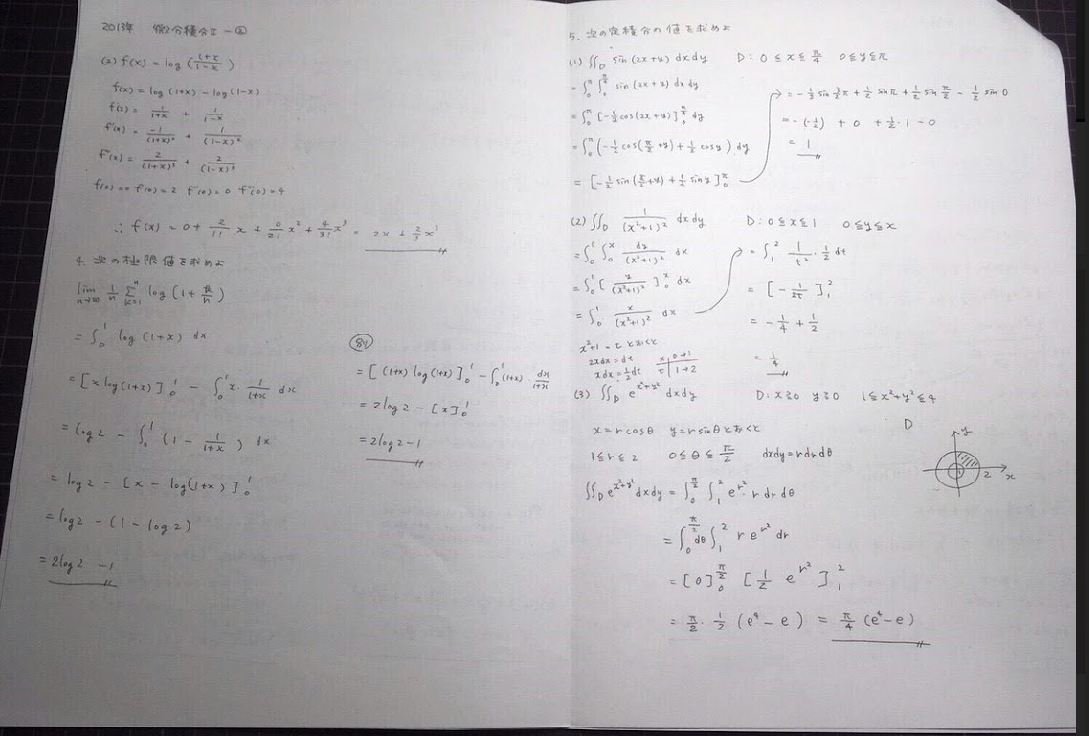 2013年 微分積分Ⅱ-②
(2) f(x) = log (1+x/1-x)
f(x) = log (1+x) - log (1-x)
f'(x) = 1/(1+x) + 1/(1-x)
f''(x) = -1/(1+x)² + 1/(1-x)²
f'''(x) = 2/(1+x)³ + 2/(1-x)³
f(0)=0 f'(0)=2 f''(0)=0 f'''(0)=4
∴ f(x) = 0 + 2/1! x + 0/2! x² + 4/3! x³ = 2x + 2/3 x³
4. 次の極限値を求めよ
lim n→∞ 1/n Σ k=1 n log (1 + k/n)
= ∫₀¹ log (1+x) dx
= [x log(1+x)]₀¹ - ∫₀¹ x · 1/(1+x) dx
= log 2 - ∫₀¹ (1 - 1/(1+x)) dx
= log 2 - [x - log(1+x)]₀¹
= log 2 - (1 - log 2)
= 2log 2 - 1
= [(1+x) log(1+x)]₀¹ - ∫₀¹ (1+x) · dx/(1+x)
= 2log 2 - [x]₀¹
= 2log 2 - 1
5. 次の定積分の値を求めよ
(1) ∬D sin (2x+y) dxdy D: 0≦x≦π/4 0≦y≦π
= ∫₀^π ∫₀^(π/4) sin (2x+y) dxdy
= ∫₀^π [-1/2 cos(2x+y)]₀^(π/4) dy
= ∫₀^π (-1/2 cos(π/2+y) + 1/2 cos y) dy
= [-1/2 sin(π/2+y) + 1/2 sin y]₀^π
= -1/2 sin 3/2 π + 1/2 sin π + 1/2 sin π/2 - 1/2 sin 0
= -(-1/2) + 0 + 1/2 · 1 - 0
= 1
(2) ∬D 1/(x²+1)² dxdy D: 0≦x≦1 0≦y≦x
= ∫₀¹ ∫₀^x dy/(x²+1)² dx
= ∫₀¹ [y/(x²+1)²]₀^x dx
= ∫₀¹ x/(x²+1)² dx
x²+1 = t とおくと
2xdx = dt
xdx = 1/2 dt
x | 0→1
t | 1→2
= ∫₁² 1/t² · 1/2 dt
= [-1/2t]₁²
= -1/4 + 1/2
= 1/4
(3) ∬D e^(x²+y²) dxdy D: x≧0 y≧0 1≦x²+y²≦4
x = r cosθ y = r sinθ とおくと
1≦r≦2 0≦θ≦π/2 dxdy = rdrdθ
D
y
2 x
∬D e^(x²+y²) dxdy = ∫₀^(π/2) ∫₁² e^(r²) · r dr dθ
= ∫₀^(π/2) dθ ∫₁² r e^(r²) dr
= [θ]₀^(π/2) [1/2 e^(r²)]₁²
= π/2 · 1/2 (e⁴ - e) = π/4 (e⁴ - e)